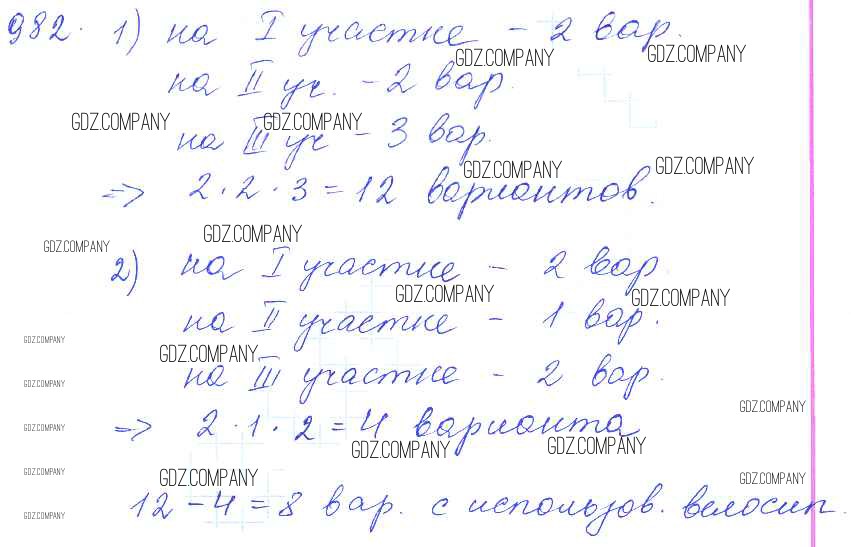 982. 1) на I участке - 2 вар.
GDZ.COMPANY GDZ.COMPANY
на II уч. - 2 вар.
GDZ.COMPANY GDZ.COMPANY
на III уч - 3 вар.
GDZ.COMPANY GDZ.COMPANY
=> 2 · 2 · 3 = 12 вариантов.
GDZ.COMPANY GDZ.COMPANY
2) на I участке - 2 вар.
GDZ.COMPANY GDZ.COMPANY
на II участке - 1 вар.
GDZ.COMPANY GDZ.COMPANY
на III участке - 2 вар.
GDZ.COMPANY GDZ.COMPANY
=> 2 · 1 · 2 = 4 варианта
GDZ.COMPANY GDZ.COMPANY GDZ.COMPANY
GDZ.COMPANY GDZ.COMPANY GDZ.COMPANY
12 - 4 = 8 вар. с использов. велосип.
GDZ.COMPANY